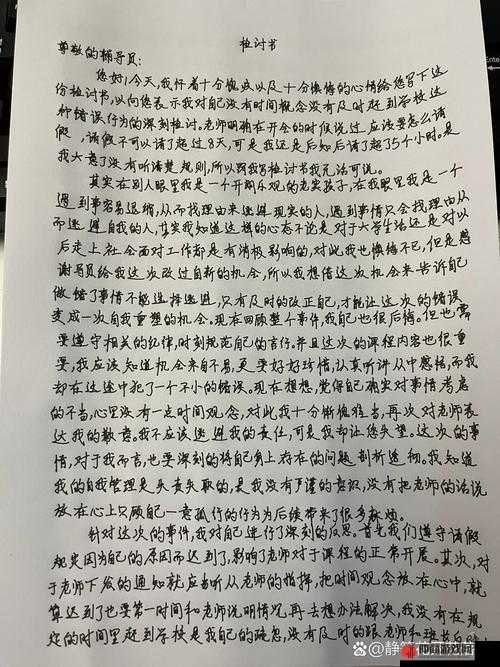 检讨书
尊敬的辅导员:
您好!今天,我怀着十分愧疚以及十分懊悔的心情给您写下这
份检讨书,以向您表示我对自己没有时间概念没有及时赶到学校这
种错误行为的深刻检讨。老师明确在开会的时候说过应该要怎么请
假,请假不可以请了超过8天,可是我还是后知后请了超了5个小时。是
我大意了没有听清楚规则,所以那我写检讨书我无话可说。
其实在别人眼里我是一个开朗乐观的老实孩子,在我眼里我是一个
遇到事容易退缩,从而找理由来逃避现实的人,遇到事情只会找理由从
而逃避自我的人,其实我知道这样的心态不论是对于大学生活还是对以
后走上社会面对工作都是有消极影响的,对此我也懊悔不已,但是感
谢导员给我这次改过自新的机会,所以我想借这次机会来告诉自己
做错了事情不能选择逃避,只有及时的改正自己,才能让这次的错误
变成一次自我重塑的机会。现在回顾整个事件,我自己也很后悔。但也需
要遵守相关的纪律,时刻规范自己的言行,并且这次的课程内容也很重
要,我应该知道机会来自不易,更要好好珍惜,认真听讲从中感悟,而我
却在这途中犯了一个不小的错误。现在想想,觉得自己确实对事情考虑
的不当,心里没有一点时间观念,对此我十分惭愧难当,再次对老师表
达我的歉意。我不应该逃避我的责任,可是我却让您失望。这次的事
情,对于我而言,也要深刻的将自己身上存在的问题剖析透彻。我知道
我的自我管理是失责失职的,是我没有严谨的意识,没有把老师的话说
放在心上只顾自己一意孤行的行为为后续带来了很多麻烦。
针对这次的事件,我对自己进行了深刻的反思。首先我们遵守请假
规定因为自己的原因而迟到了,影响了老师对于课程的正常开展。其次,对
于老师下发的通知就应当听从老师的指挥,把时间观念放在心中,就
算迟到了也要第一时间和老师说明情况,再去想办法解决,我没有在规
定的时间里赶到学校是我自己的疏忽,没有及时的跟老师和